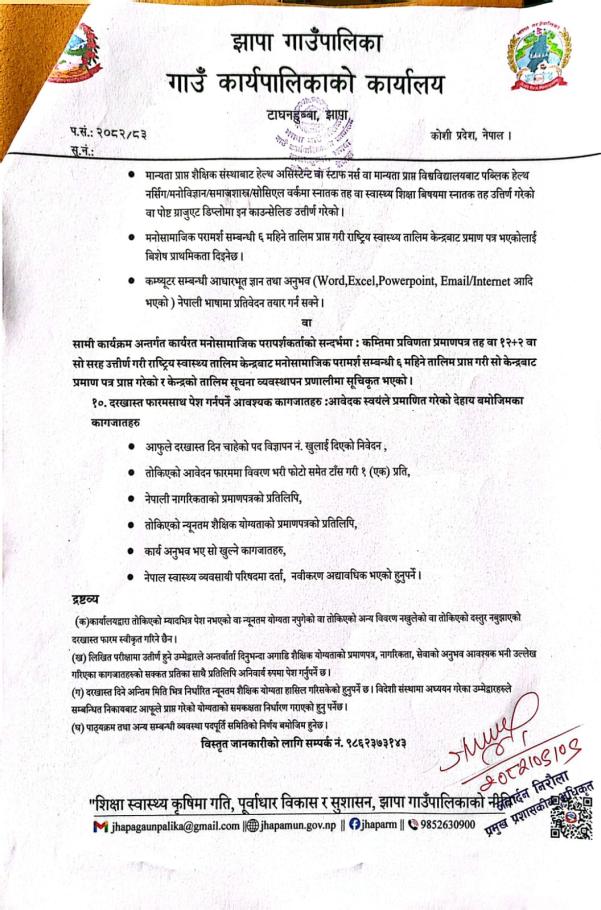 झापा गाउँपालिका
गाउँ कार्यपालिकाको कार्यालय
टाघनडुब्बा, झापा
प.सं.: २०८२/८३
कोशी प्रदेश, नेपाल ।
सू.नं.:
• मान्यता प्राप्त शैक्षिक संस्थाबाट हेल्थ असिस्टेन्ट वा स्टाफ नर्स वा मान्यता प्राप्त विश्वविद्यालयबाट पब्लिक हेल्थ
नर्सिग/मनोविज्ञान/समाजशास्त्र/सोसिएल वर्कमा स्नातक तह वा स्वास्थ्य शिक्षा बिषयमा स्नातक तह उत्तिर्ण गरेको
वा पोष्ट ग्राजुएट डिप्लोमा इन काउन्सेलिङ उत्तीर्ण गरेको ।
• मनोसामाजिक परामर्श सम्बन्धी ६ महिने तालिम प्राप्त गरी राष्ट्रिय स्वास्थ्य तालिम केन्द्रबाट प्रमाण पत्र भएकोलाई
बिशेष प्राथमिकता दिइनेछ ।
• कम्प्यूटर सम्बन्धी आधारभूत ज्ञान तथा अनुभव (Word,Excel,Powerpoint, Email/Internet आदि
भएको ) नेपाली भाषामा प्रतिवेदन तयार गर्न सक्ने ।
वा
सामी कार्यक्रम अन्तर्गत कार्यरत मनोसामाजिक परापर्शकर्ताको सन्दर्भमा : कम्तिमा प्रविणता प्रमाणपत्र तह वा १२+२ वा
सो सरह उत्तीर्ण गरी राष्ट्रिय स्वास्थ्य तालिम केन्द्रबाट मनोसामाजिक परामर्श सम्बन्धी ६ महिने तालिम प्राप्त गरी सो केन्द्रबाट
प्रमाण पत्र प्राप्त गरेको र केन्द्रको तालिम सूचना व्यवस्थापन प्रणालीमा सूचिकृत भएको ।
१०. दरखास्त फारमसाथ पेश गर्नपर्ने आवश्यक कागजातहरु :आवेदक स्वयंले प्रमाणित गरेको देहाय बमोजिमका
कागजातहरु
• आफुले दरखास्त दिन चाहेको पद विज्ञापन नं. खुलाई दिएको निवेदन ,
• तोकिएको आवेदन फारममा विवरण भरी फोटो समेत टाँस गरी १ (एक) प्रति,
• नेपाली नागरिकताको प्रमाणपत्रको प्रतिलिपि,
• तोकिएको न्यूनतम शैक्षिक योग्यताको प्रमाणपत्रको प्रतिलिपि,
• कार्य अनुभव भए सो खुल्ने कागजातहरु,
• नेपाल स्वास्थ्य व्यवसायी परिषदमा दर्ता, नवीकरण अद्यावधिक भएको हुनुपर्ने ।
द्रष्टव्य
(क)कार्यालयद्वारा तोकिएको म्यादभित्र पेश नभएको वा न्यूनतम योग्यता नपुगेको वा तोकिएको अन्य विवरण नखुलेको वा तोकिएको दस्तुर नबुझाएको
दरखास्त फारम स्वीकृत गरिने छैन ।
(ख) लिखित परीक्षामा उतीर्ण हुने उम्मेद्वारले अन्तर्वार्ता दिनुभन्दा अगाडि शैक्षिक योग्यताको प्रमाणपत्र, नागरिकता, सेवाको अनुभव आवश्यक भनी उल्लेख
गरिएका कागजातहरुको सक्कत प्रतिका साथै प्रतिलिपि अनिवार्य रुपमा पेश गर्नुपर्ने छ ।
(ग) दरखास्त दिने अन्तिम मिति भित्र निर्धारित न्यूनतम शैक्षिक योग्यता हासिल गरिसकेको हुनुपर्ने छ । विदेशी संस्थामा अध्ययन गरेका उम्मेद्वारहरुले
सम्बन्धित निकायबाट आफूले प्राप्त गरेको योग्यताको समकक्षता निर्धारण गराएको हुनु पर्नेछ ।
(घ) पाठ्यक्रम तथा अन्य सम्बन्धी व्यवस्था पदपूर्ति समितिको निर्णय बमोजिम हुनेछ ।
विस्तृत जानकारीको लागि सम्पर्क नं. ९८६२३७३१४३
२०८२।०९।०९
जनार्दन निरौला
प्रमुख प्रशासकीय अधिकृत
"शिक्षा स्वास्थ्य कृषिमा गति, पूर्वाधार विकास र सुशासन, झापा गाउँपालिकाको नीति"
jhapagaunpalika@gmail.com ||jhapamun.gov.np || jhaparm || 9852630900